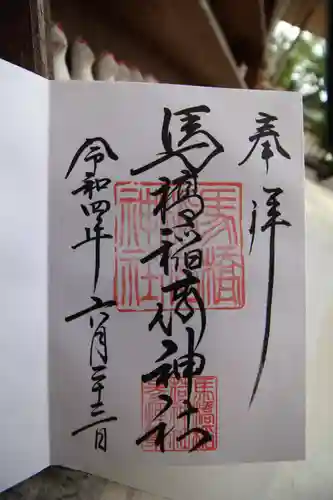 奉拝
馬橋稲荷神社
令和四年六月二十三日
馬橋稲荷神社
馬橋稲荷神社